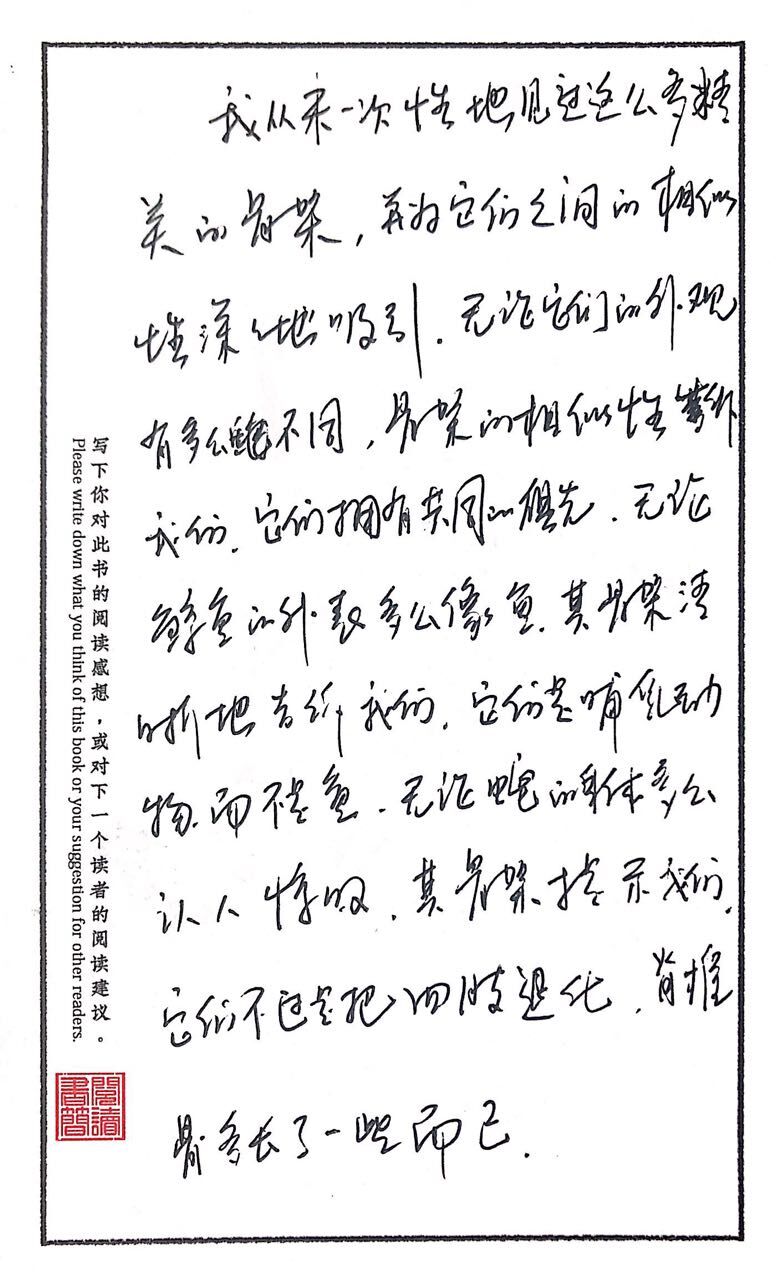 我从未一次性地见过这么多精
美的骨架，并为它们之间的相似
性深深地吸引．无论它们的外观
有多么不同，骨架的相似性告诉
我们．它们拥有共同的祖先．无论
鲸鱼的外表多么像鱼．其骨架清
晰地告诉我们．它们是哺乳动
物．而不是鱼．无论蛇的身体多么
让人惊叹．其骨架揭示我们．
它们不过是把四肢退化．脊椎
骨多长了一些而已．
写下你对此书的阅读感想，或对下一个读者的阅读建议。
Please write down what you think of this book or your suggestion for other readers.
閱讀
書簡